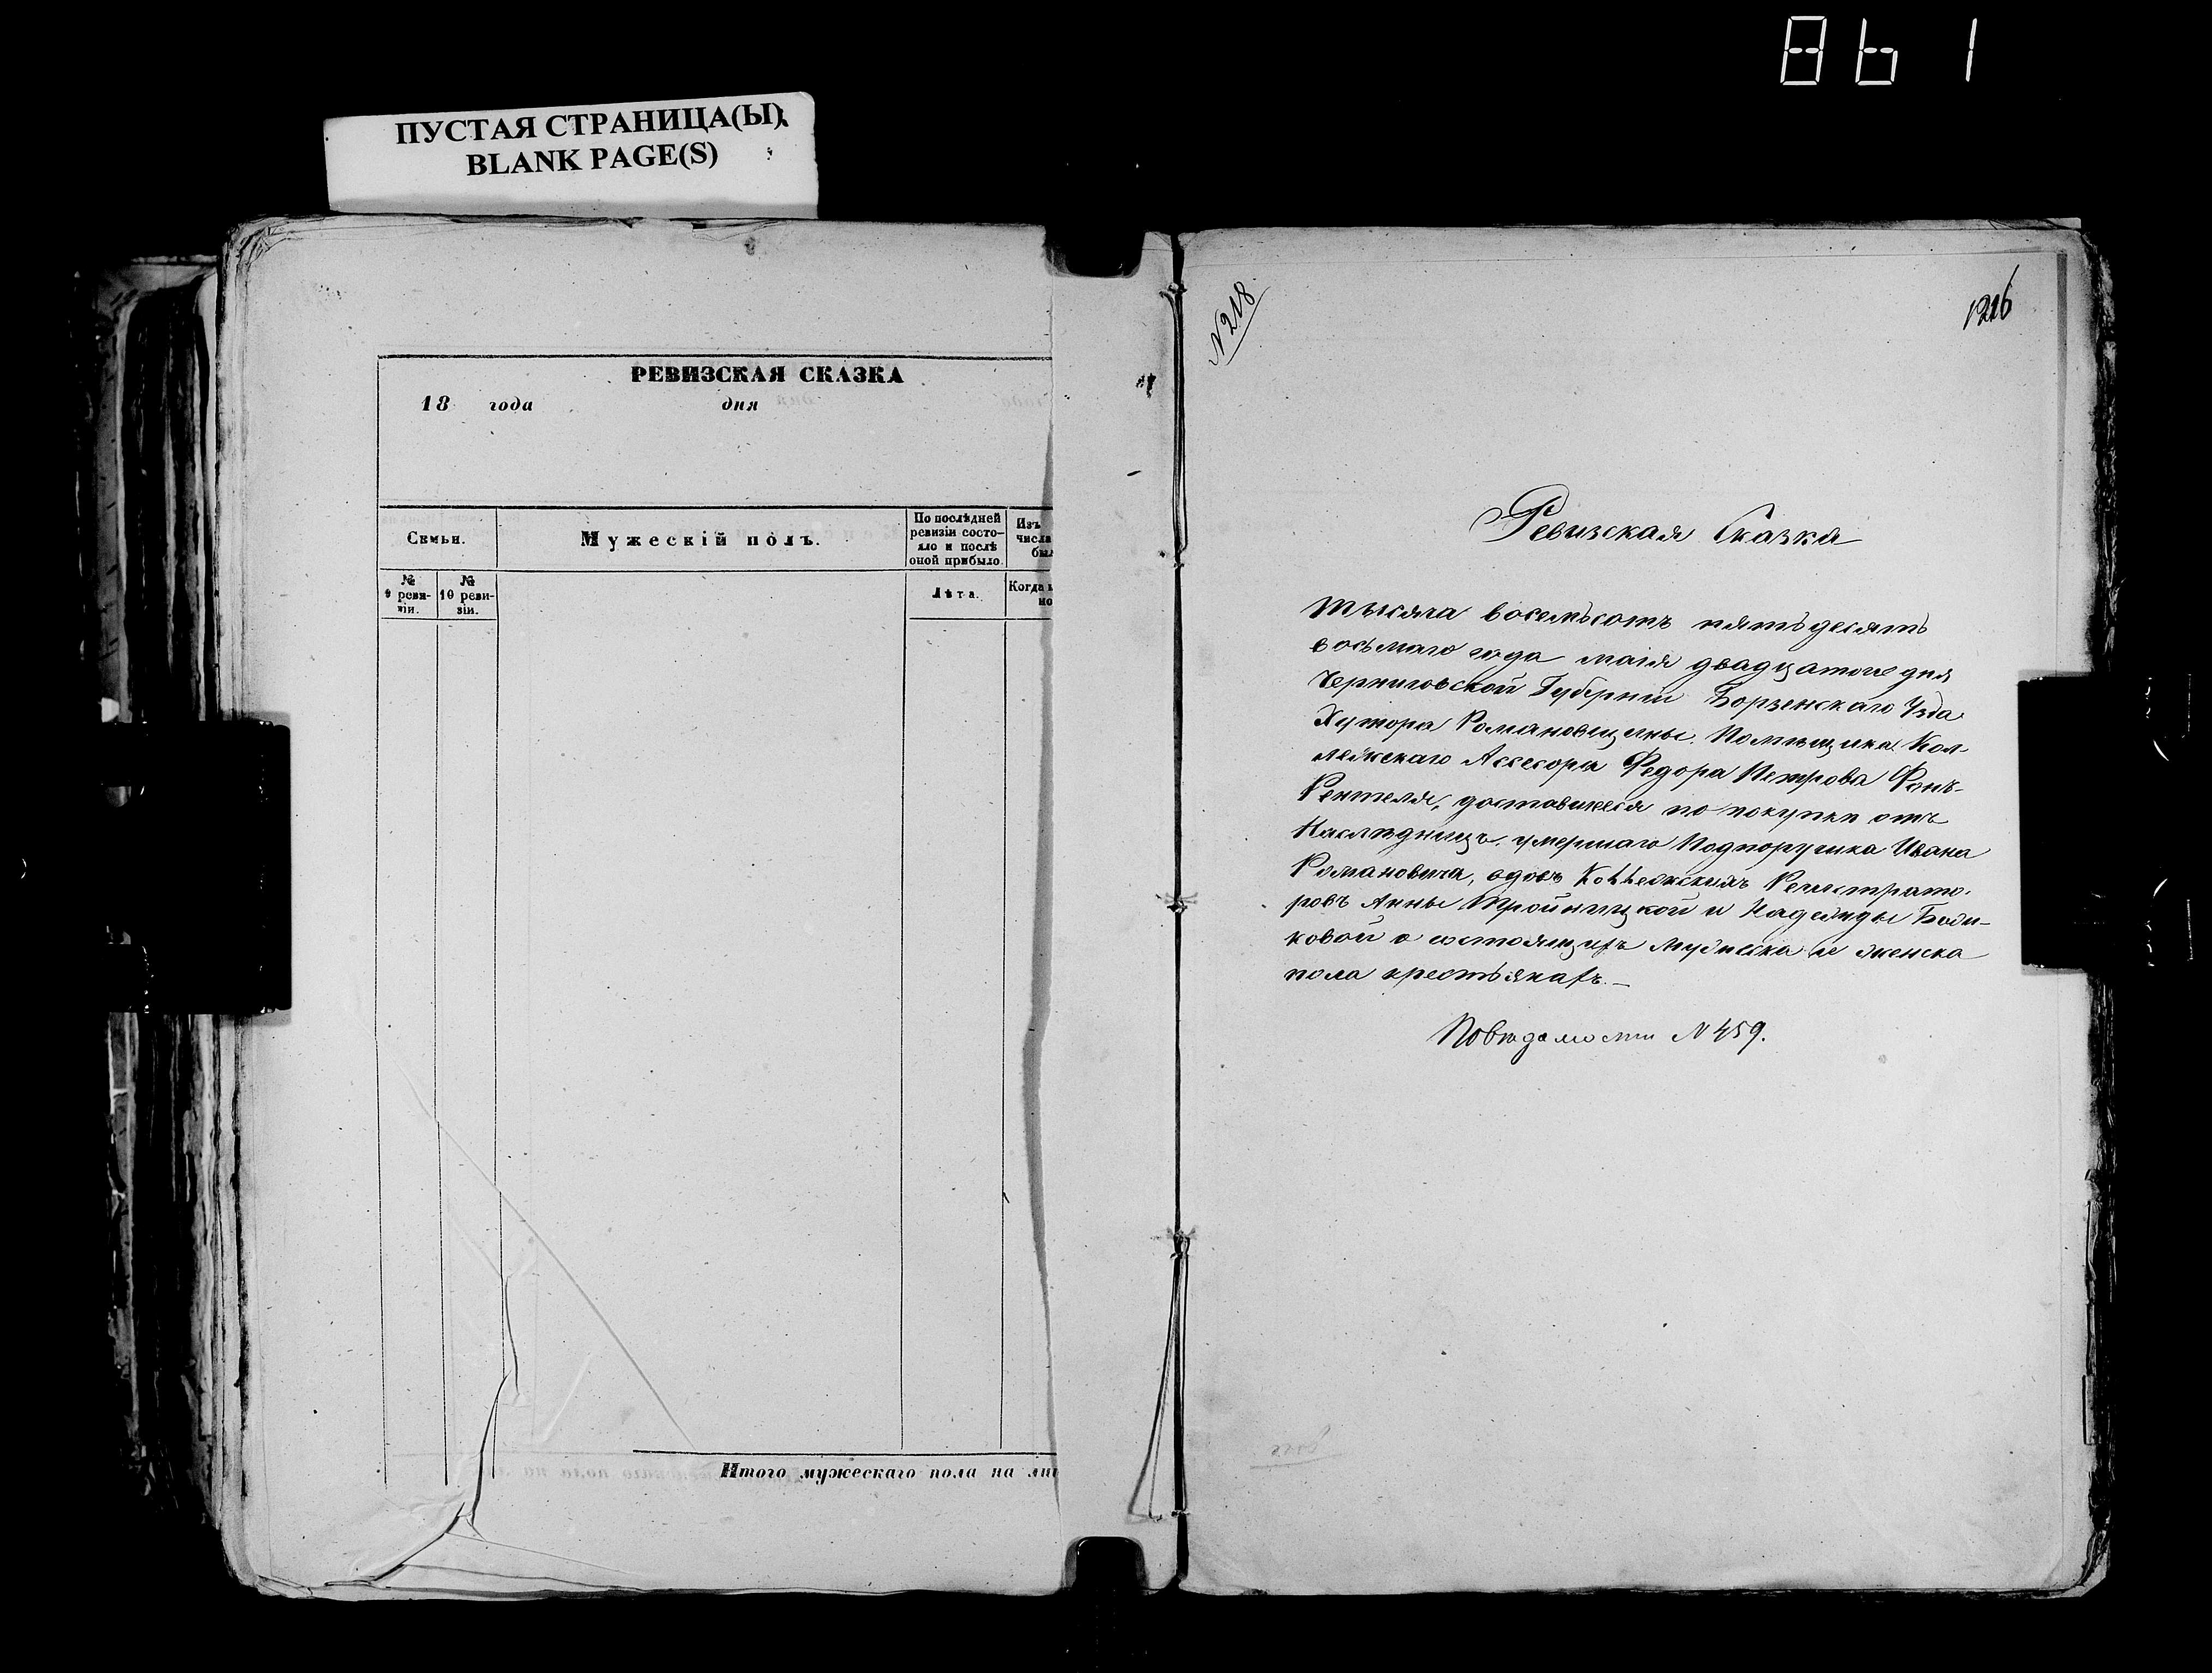 861
ПУСТАЯ СТРАНИЦА(Ы)
BLANK PAGE(S)
РЕВИЗСКАЯ СКАЗКА
18 года дня
Семьи.
Мужескій полъ.
По послѣдней
ревизіи состо-
яло и послѣ
оной прибыло.
Изъ
числа
№
9 реви-
зіи.
№
10 реви-
зіи.
Лѣта.
Когда
Итого мужескаго пола на
N 218.
1216
Ревизская Сказка
Тысяча восемьсотъ пятьдесятъ
восьмаго года маія двадцатого дня
Черниговской Губерніи Борзенскаго Уѣзда
Хутора Романовщины. Помѣщика Кол-
лежскаго Ассесора Федора Петрова Фонъ-
Рентеля, доставшееся по покупки отъ
Наслѣдницъ умершаго Подпоручика Ивана
Романовича, вдовъ Коллежскихъ Регистрато-
ровъ Анны Тройницкой и Надежды
ковой о состоящихъ мужеска и женска
пола крестьянахъ.—
По вѣдомости N 459.